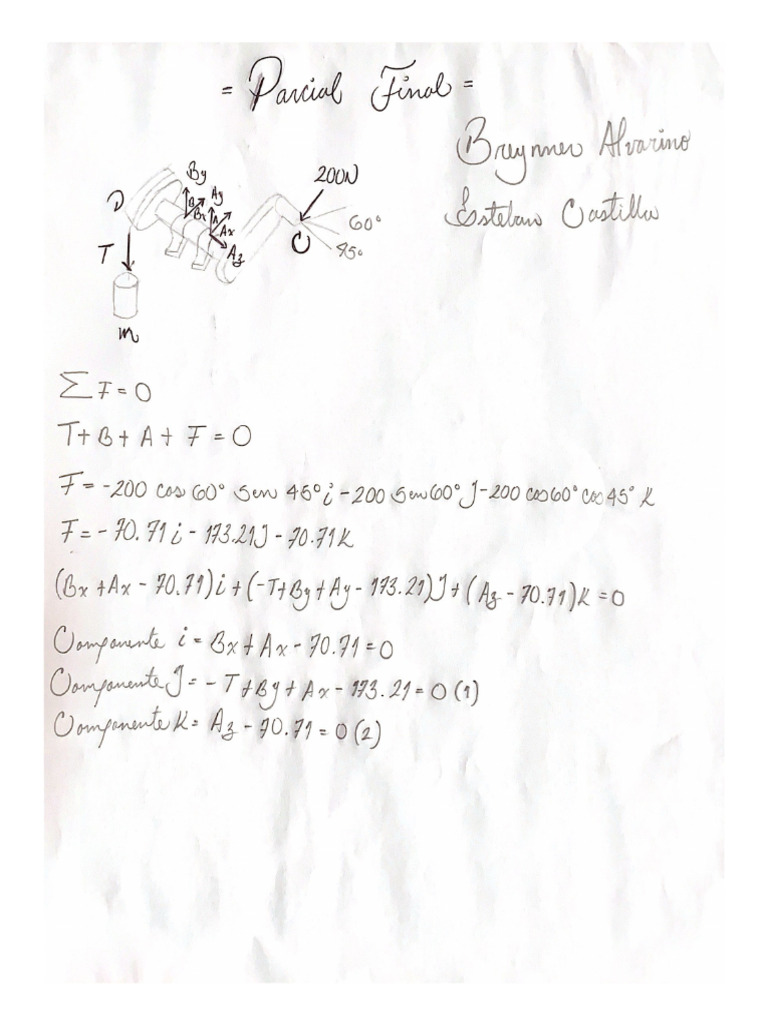 = Parcial Final =
Breynner Alvarino
Esteban Castilla
By
Ay
200N
D
B
Bx
A
Ax
60°
T
Az
C
45°
m
∑ F = 0
T + B + A + F = 0
F = -200 cos 60° Sen 45° i - 200 Sen 60° J - 200 cos 60° cos 45° K
F = - 70.71 i - 173.21 J - 70.71 K
(Bx + Ax - 70.71) i + (-T + By + Ay - 173.21) J + (Az - 70.71) K = 0
Componente i = Bx + Ax - 70.71 = 0
Componente J = - T + By + Ax - 173.21 = 0 (1)
Componente K = Az - 70.71 = 0 (2)